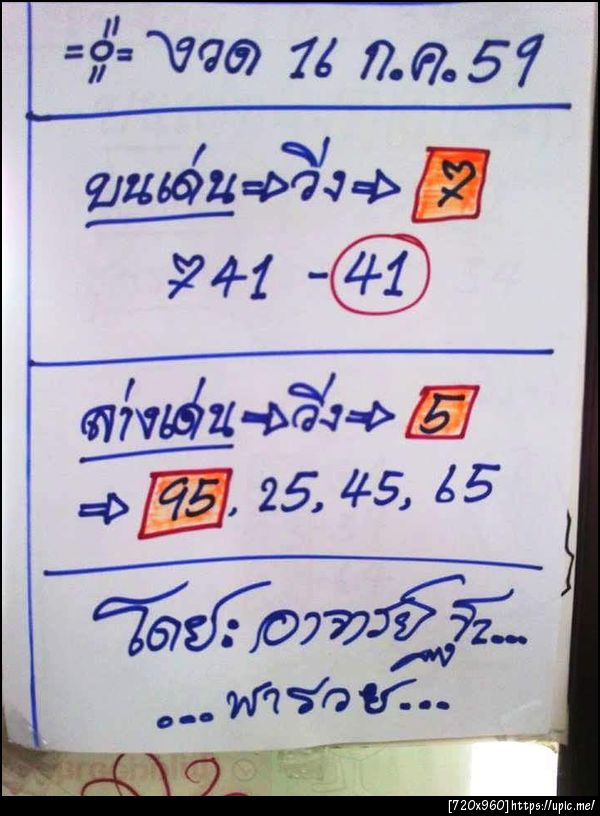 งวด 16 ก.ค. 59
บนเด่น⇒วิ่ง⇒ 7
741 - 41
ล่างเด่น⇒วิ่ง⇒ 5
⇒ 95, 25, 45, 65
โดย: อาจารย์
...พารวย...
[720x960]https://upic.me/